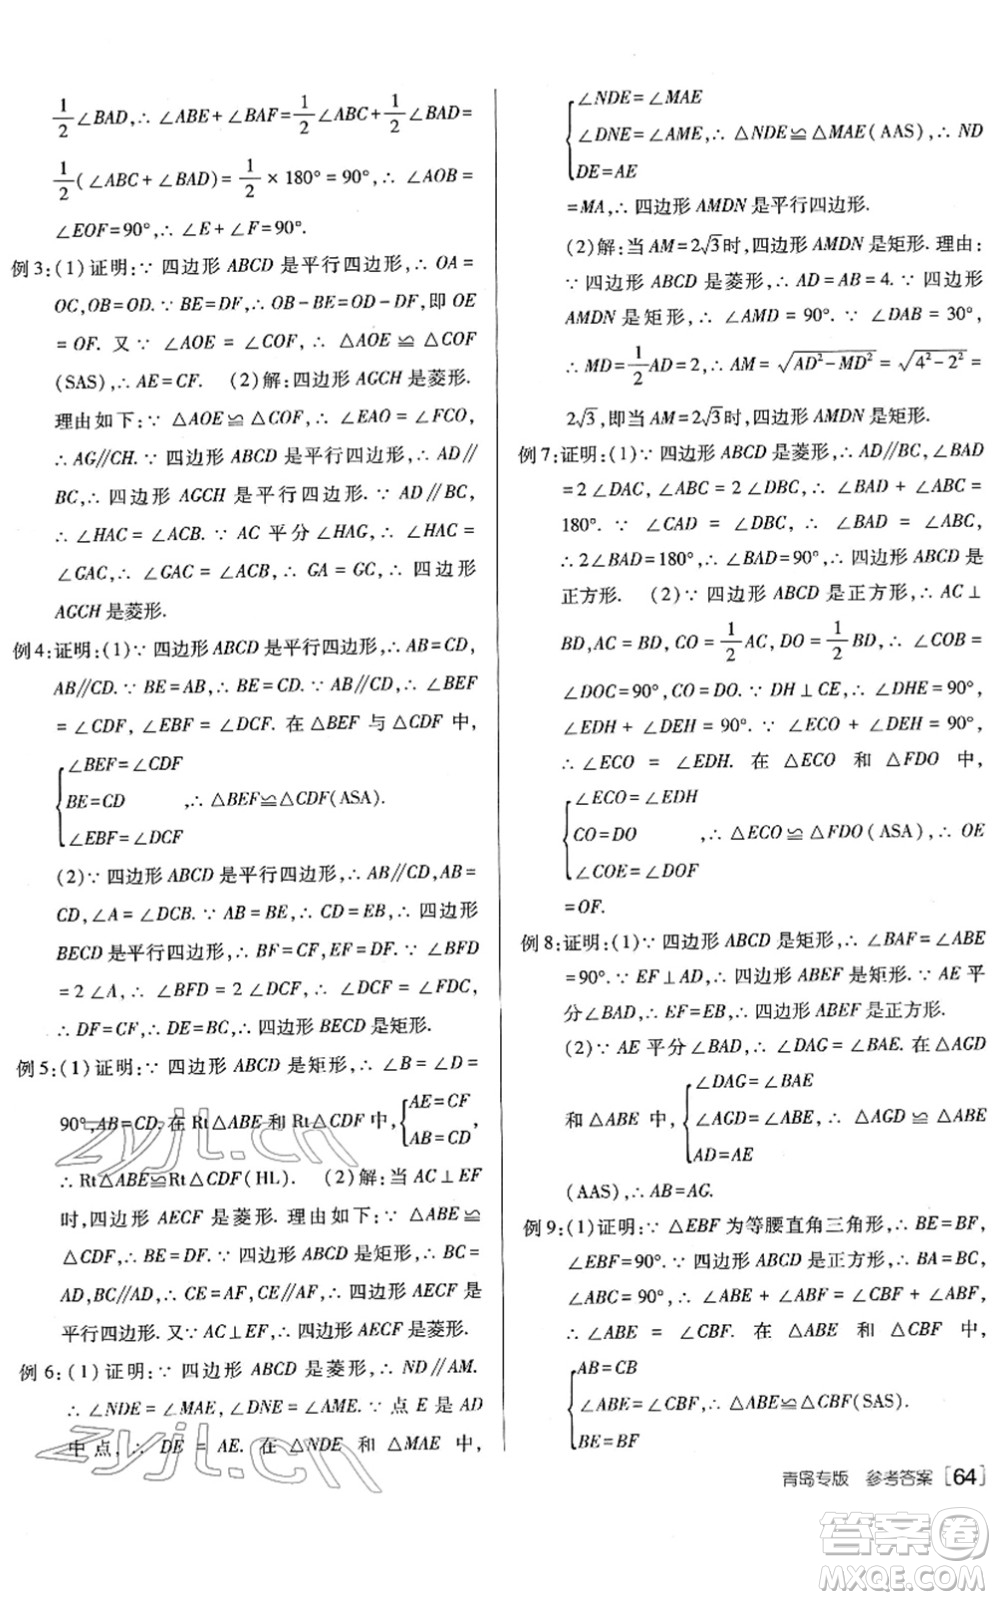 1/2∠BAD,∴∠ABE+∠BAF=1/2∠ABC+1/2∠BAD=
1/2(∠ABC+∠BAD)=1/2×180°=90°,∴∠AOB=
∠EOF=90°,∴∠E+∠F=90°.
例3:(1)证明:∵四边形ABCD是平行四边形,∴OA=
OC,OB=OD.∵BE=DF,∴OB-BE=OD-DF,即OE
=OF.又∵∠AOE=∠COF,∴△AOE≌△COF
(SAS),∴AE=CF. (2)解:四边形AGCH是菱形.
理由如下:∵△AOE≌△COF,∴∠EAO=∠FCO,
∴AG∥CH.∵四边形ABCD是平行四边形,∴AD∥
BC,∴四边形AGCH是平行四边形.∵AD∥BC,
∴∠HAC=∠ACB.∵AC平分∠HAG,∴∠HAC=
∠GAC,∴∠GAC=∠ACB,∴GA=GC,∴四边形
AGCH是菱形.
例4:证明:(1)∵四边形ABCD是平行四边形,∴AB=CD,
AB∥CD.∵BE=AB,∴BE=CD.∵AB∥CD,∴∠BEF
=∠CDF,∠EBF=∠DCF.在△BEF与△CDF中,
∠BEF=∠CDF
BE=CD ,∴△BEF≌△CDF(ASA).
∠EBF=∠DCF
(2)∵四边形ABCD是平行四边形,∴AB∥CD,AB=
CD,∠A=∠DCB.∵AB=BE,∴CD=EB,∴四边形
BECD是平行四边形,∴BF=CF,EF=DF.∵∠BFD
=2∠A,∴∠BFD=2∠DCF,∴∠DCF=∠FDC,
∴DF=CF,∴DE=BC,∴四边形BECD是矩形.
例5:(1)证明:∵四边形ABCD是矩形,∴∠B=∠D=
90°,AB=CD.在Rt△ABE和Rt△CDF中,{AE=CF
AB=CD,
∴Rt△ABE≌Rt△CDF(HL). (2)解:当AC⊥EF
时,四边形AECF是菱形.理由如下:∵△ABE≌
△CDF,∴BE=DF.∵四边形ABCD是矩形,∴BC=
AD,BC∥AD,∴CE=AF,CE∥AF,∴四边形AECF是
平行四边形.又∵AC⊥EF,∴四边形AECF是菱形.
例6:(1)证明:∵四边形ABCD是菱形,∴ND∥AM.
∴∠NDE=∠MAE,∠DNE=∠AME.∵点E是AD
中点,∴DE=AE.在△NDE和△MAE中,
∠NDE=∠MAE
∠DNE=∠AME,∴△NDE≌△MAE(AAS),∴ND
DE=AE
=MA,∴四边形AMDN是平行四边形.
(2)解:当AM=2√3时,四边形AMDN是矩形.理由:
∵四边形ABCD是菱形,∴AD=AB=4.∵四边形
AMDN是矩形,∴∠AMD=90°.∵∠DAB=30°,
∴MD=1/2AD=2,∴AM=√(AD²-MD²)=√(4²-2²)=
2√3,即当AM=2√3时,四边形AMDN是矩形.
例7:证明:(1)∵四边形ABCD是菱形,∴AD∥BC,∠BAD
=2∠DAC,∠ABC=2∠DBC,∴∠BAD+∠ABC=
180°.∵∠CAD=∠DBC,∴∠BAD=∠ABC,
∴2∠BAD=180°,∴∠BAD=90°,∴四边形ABCD是
正方形. (2)∵四边形ABCD是正方形,∴AC⊥
BD,AC=BD,CO=1/2AC,DO=1/2BD,∴∠COB=
∠DOC=90°,CO=DO.∵DH⊥CE,∴∠DHE=90°,
∠EDH+∠DEH=90°.∵∠ECO+∠DEH=90°,
∴∠ECO=∠EDH.在△ECO和△FDO中,
∠ECO=∠EDH
CO=DO ,∴△ECO≌△FDO(ASA),∴OE
∠COE=∠DOF
=OF.
例8:证明:(1)∵四边形ABCD是矩形,∴∠BAF=∠ABE
=90°.∵EF⊥AD,∴四边形ABEF是矩形.∵AE平
分∠BAD,∴EF=EB,∴四边形ABEF是正方形.
(2)∵AE平分∠BAD,∴∠DAG=∠BAE.在△AGD
∠DAG=∠BAE
和△ABE中,{∠AGD=∠ABE,∴△AGD≌△ABE
AD=AE
(AAS),∴AB=AG.
例9:(1)证明:∵△EBF为等腰直角三角形,∴BE=BF,
∠EBF=90°.∵四边形ABCD是正方形,∴BA=BC,
∠ABC=90°,∴∠ABE+∠ABF=∠CBF+∠ABF,
∴∠ABE=∠CBF.在△ABE和△CBF中,
AB=CB
∠ABE=∠CBF,∴△ABE≌△CBF(SAS).
BE=BF
青岛专版 参考答案 [64]
zyjl.cn
zyjl.cn
答案卷
MXQE.COM